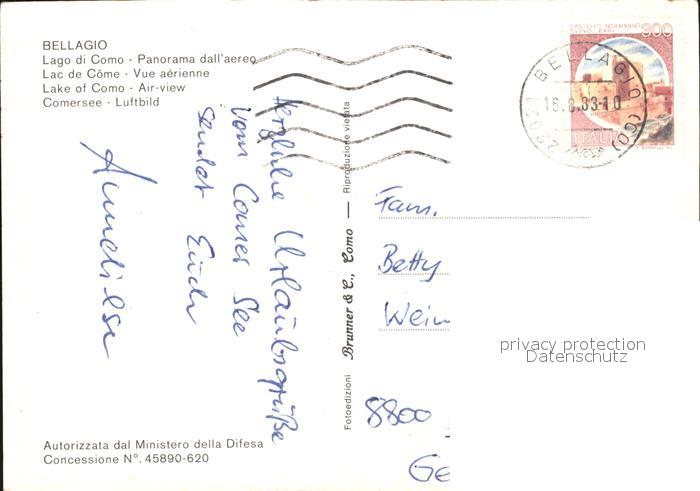 BELLAGIO
Lago di Como - Panorama dall'aereo
Lac de Côme - Vue aérienne
Lake of Como - Air-view
Comersee - Luftbild
Herzliche Urlaubsgrüße
vom Comer See
sendet Euch
Anneliese
Autorizzata dal Ministero della Difesa
Concessione N°. 45890-620
Fotoedizioni Brunner & C., Como — Riproduzione vietata
CASTELLO NORMANNO
SVEVO BARI
300
ITALIA
BELLAGIO (CO)
16.8.83-10
Fam.
Betty
Wein
8800
Ge
privacy protection
Datenschutz